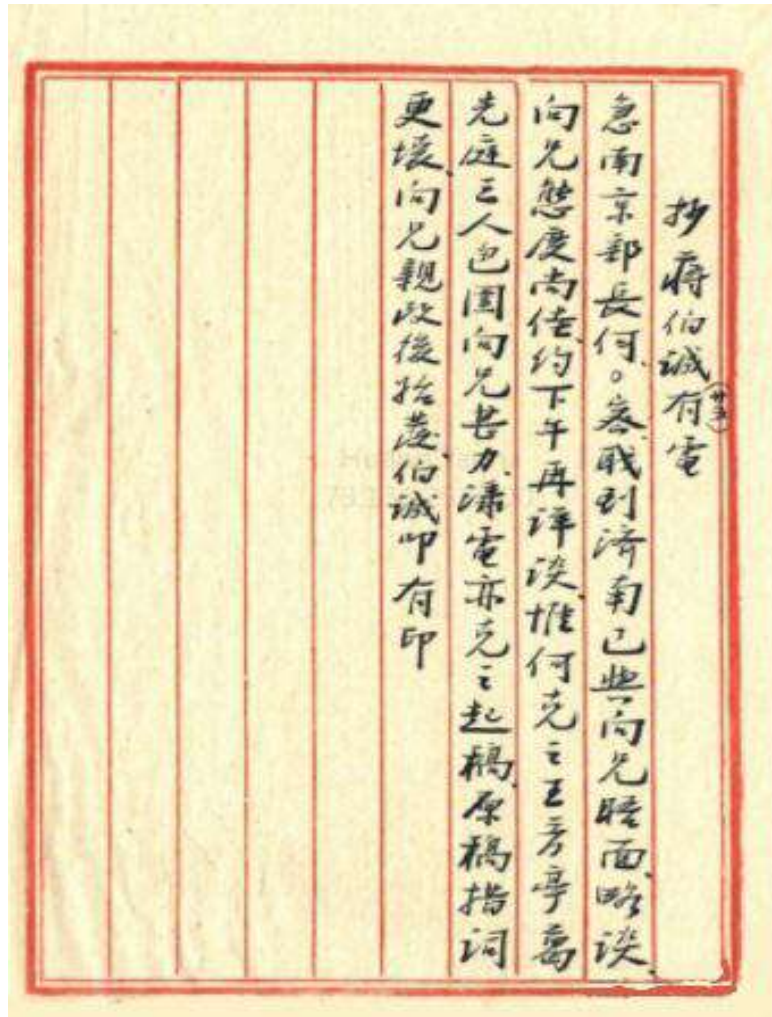 抄蔣伯誠有(廿五)電
急南京部長何。密職到濟南已與向兄晤面、略談、
向兄態度尚佳、約下午再詳談、惟何克之王芳亭葛
光庭三人包圍向兄甚力、漾電亦克之起稿、原稿措詞
更壞、向兄親改後拍發、伯誠叩有印